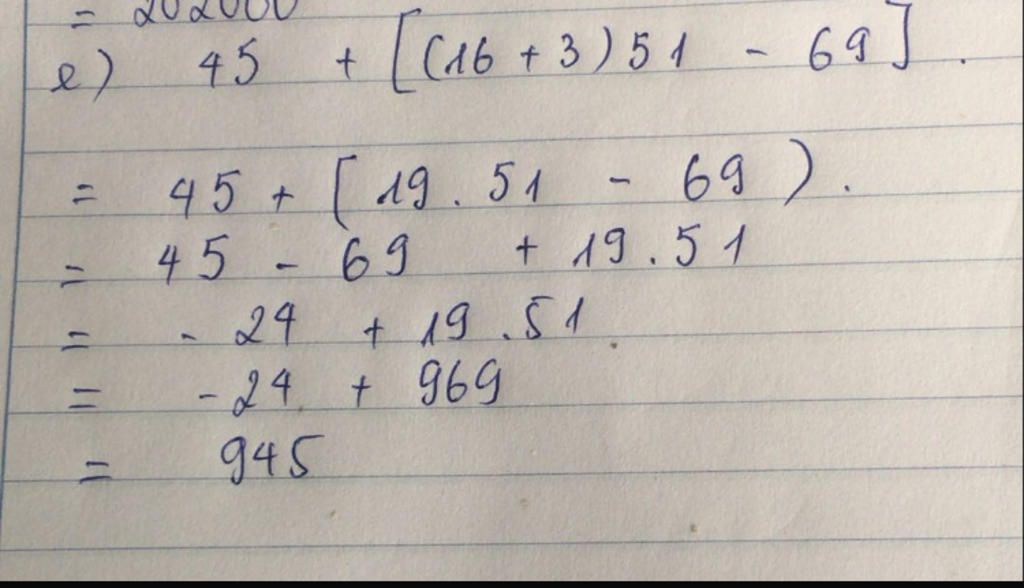 = 202000
e) 45 + [(16 + 3) 51 - 69] .
= 45 + [ 19 . 51 - 69 ) .
= 45 - 69 + 19 . 51
= - 24 + 19 . 51
= - 24 + 969
= 945